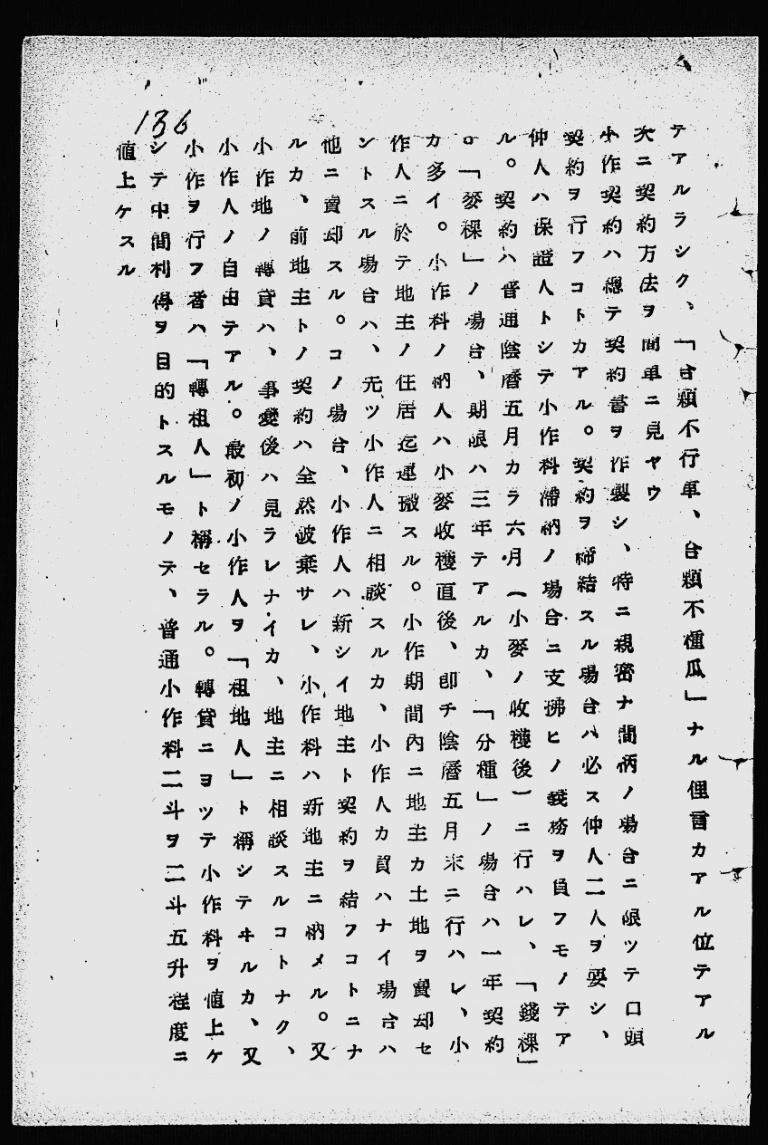 136
テアルラシク、「台頼不行車、台頼不種瓜」ナル俚言カアル位テアル
次ニ契約方法ヲ簡単ニ見ヤウ
小作契約ハ總テ契約書ヲ作製シ、特ニ親密ナ間柄ノ場合ニ限ツテ口頭
契約ヲ行フコトカアル。契約ヲ締結スル場合ハ必ス仲人二人ヲ要シ、
仲人ハ保證人トシテ小作料滯納ノ場合ニ支拂ヒノ義務ヲ負フモノテア
ル。契約ハ普通陰暦五月カラ六月(小麥ノ收穫後)ニ行ハレ、「錢稞」
。「麥稞」ノ場合、期限ハ三年テアルカ、「分種」ノ場合ハ一年契約
カ多イ。小作料ノ納入ハ小麥收穫直後、卽チ陰暦五月末ニ行ハレ、小
作人ニ於テ地主ノ住居迄運搬スル。小作期間內ニ地主カ土地ヲ賣却セ
ントスル場合ハ、先ツ小作人ニ相談スルカ、小作人カ買ハナイ場合ハ
他ニ賣却スル。コノ場合、小作人ハ新シイ地主ト契約ヲ結フコトニナ
ルカ、前地主トノ契約ハ全然破棄サレ、小作料ハ新地主ニ納メル。又
小作地ノ轉貸ハ、事變後ハ見ラレナイカ、地主ニ相談スルコトナク、
小作人ノ自由テアル。最初ノ小作人ヲ「租地人」ト稱シテヰルカ、又
小作ヲ行フ者ハ「轉租人」ト稱セラル。轉貸ニヨツテ小作料ヲ値上ケ
シテ中間利得ヲ目的トスルモノテ、普通小作料二斗ヲ二斗五升程度ニ
値上ケスル